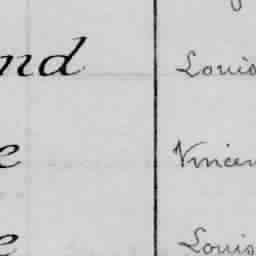 nd Louis
e Vincen
e Louis